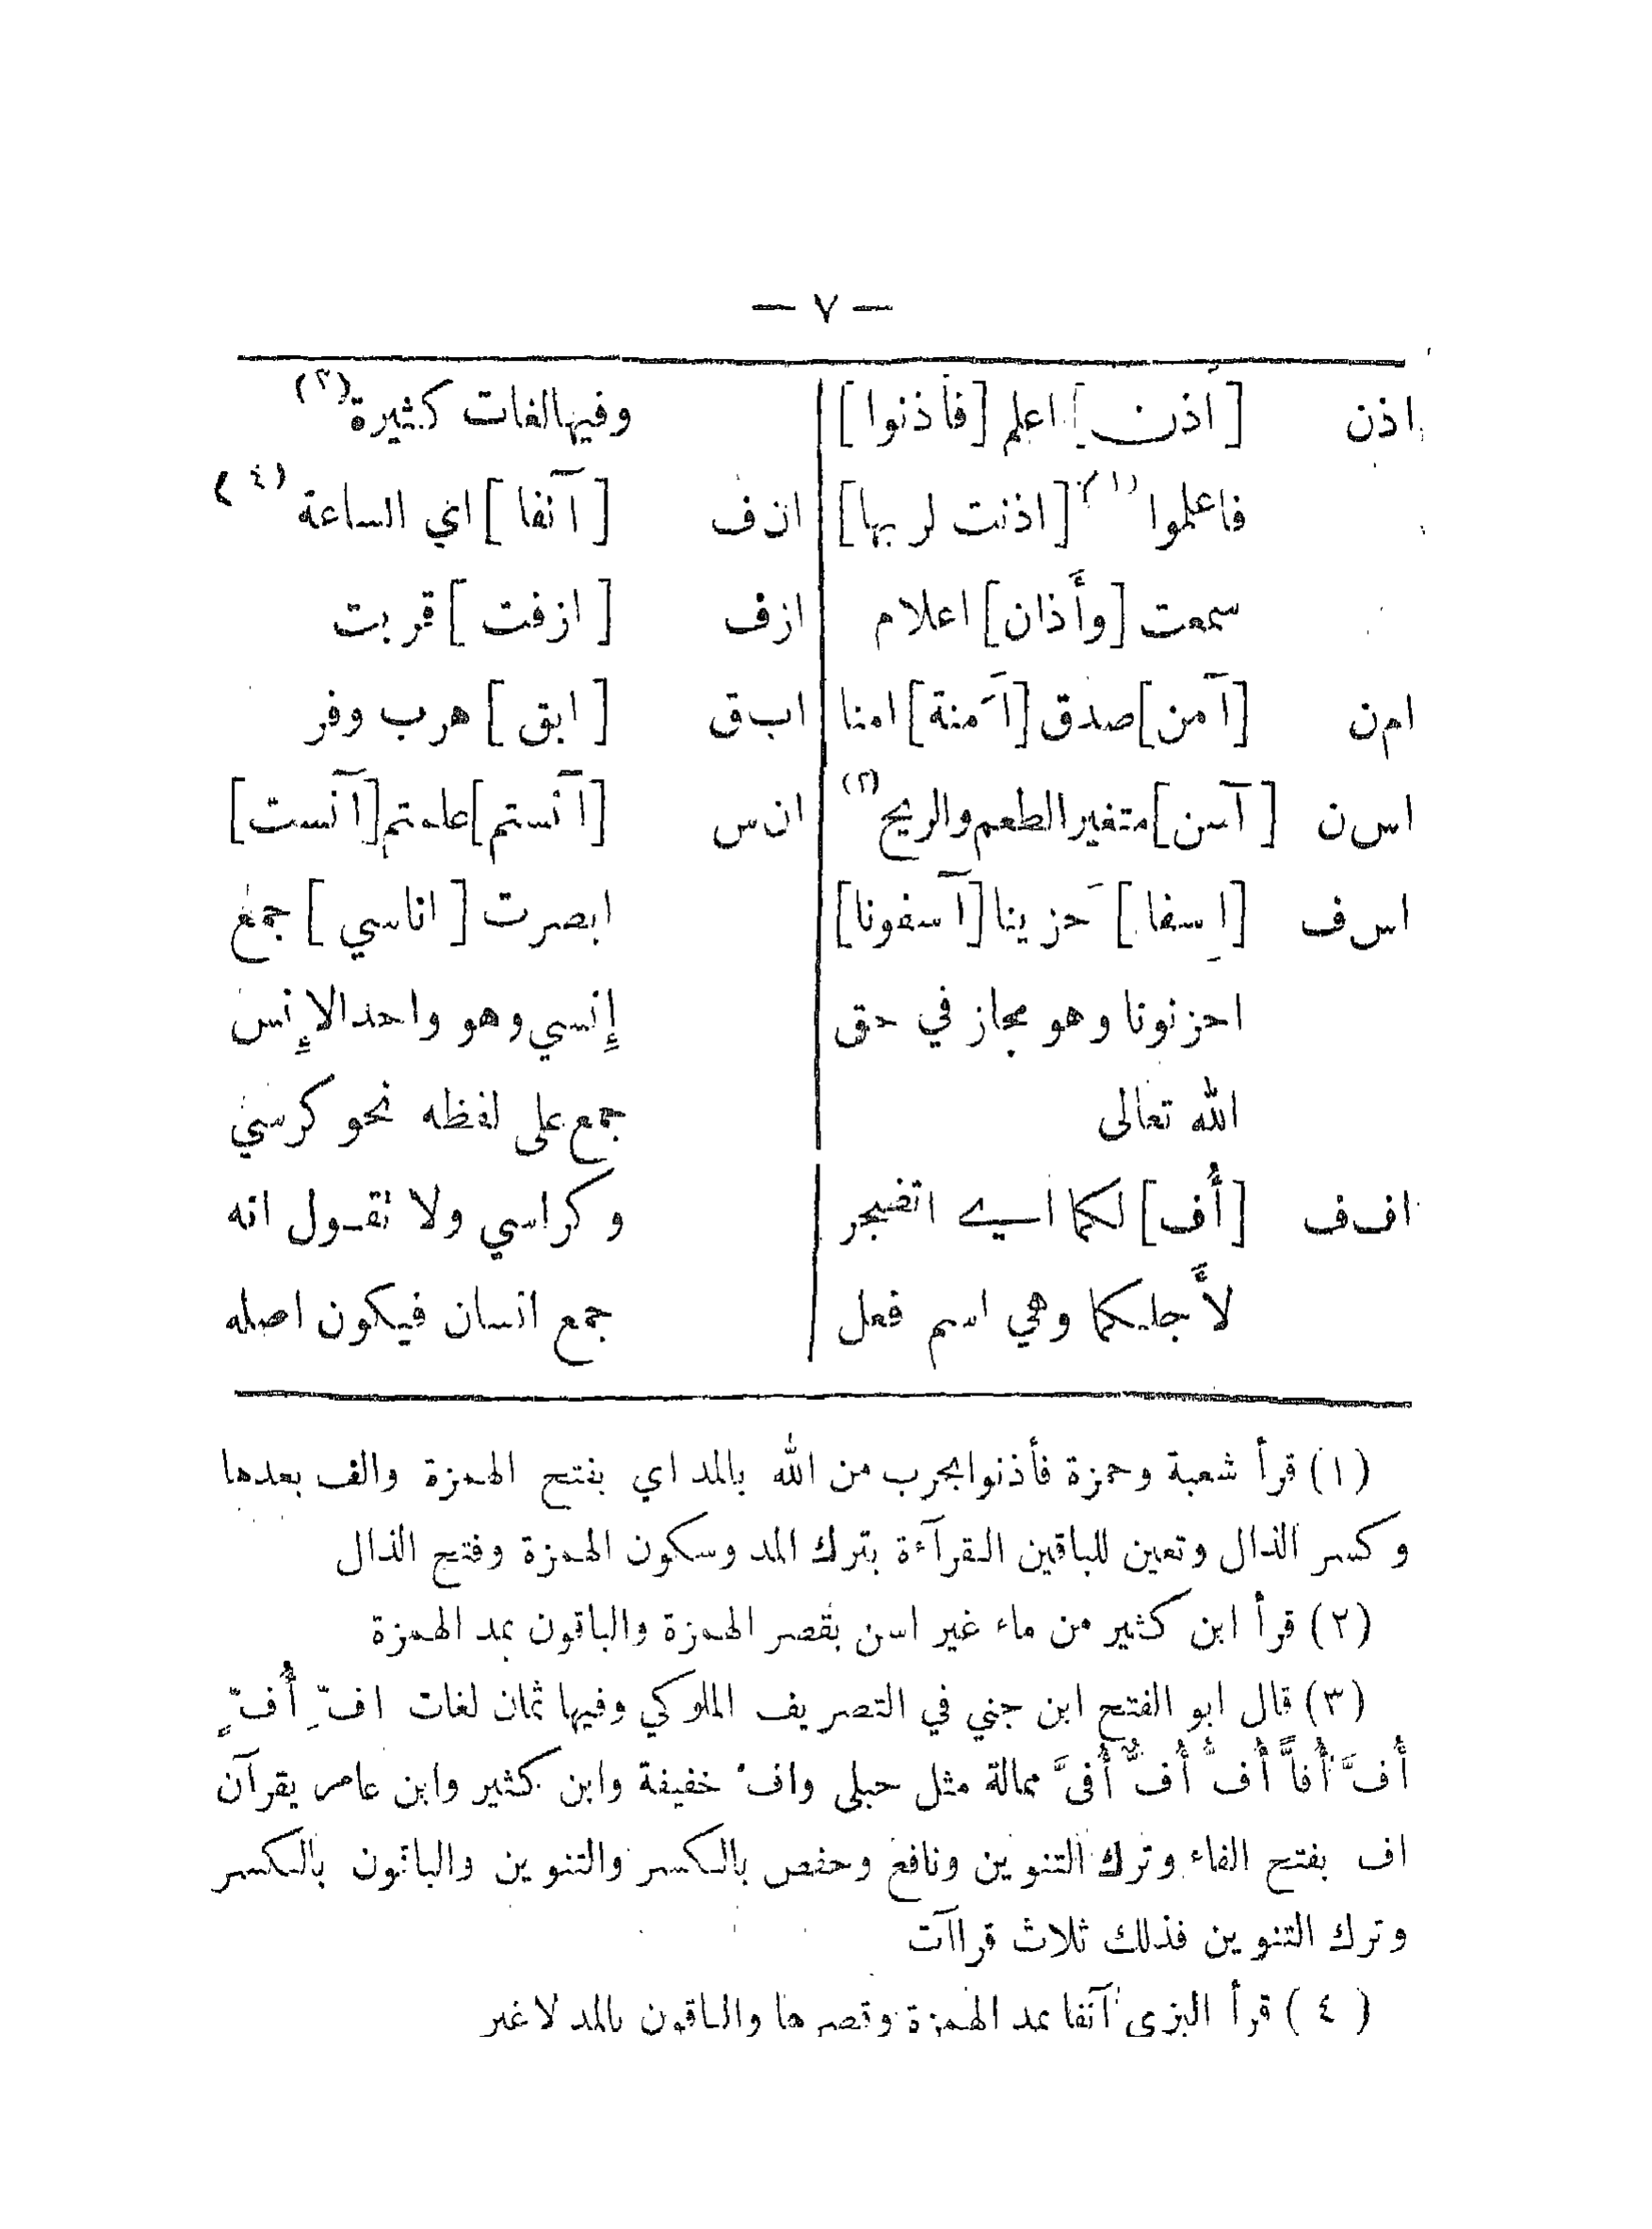 — ٧ —
اذن [أَذن] اعلم [فأذنوا]
فاعلموا (١) [اذنت لربها]
سمعت [وأَذان] اعلام
ام‌ن [آمن] صدق [آَمنة] امنا
اس‌ن [آسن] متغير الطعم والريح (٢)
اس‌ف [اسِفا] حَزينا [آسفونا]
احزنونا وهو مجاز في حق
الله تعالى
اف‌ف [أُف] لكما اسيے اتضجر
لأَجلكما وهي اسم فعل
وفيها لغات كثيرة (٣)
ان‌ف [آنفا] اي الساعة (٤)
ازف [ازفت] قربت
اب‌ق [ابق] هرب وفر
ان‌س [آنستم] علمتم [آنست]
ابصرت [اناسي] جمع
إِنسي وهو واحد الإِنس
جمع على لفظه نحو كرسي
وكراسي ولا نقول انه
جمع انسان فيكون اصله
(١) قرأ شعبة وحمزة فأذنوا بحرب من الله بالمد اي بفتح الهمزة والف بعدها
وكسر الذال وتعين للباقين القرآءة بترك المد وسكون الهمزة وفتح الذال
(٢) قرأ ابن كثير من ماء غير اسن بقصر الهمزة والباقون بمد الهمزة
(٣) قال ابو الفتح ابن جني في التصريف الملوكي وفيها ثمان لغات افِّ أُفٍّ
أُفَّ أُفاًّ أُفُّ أُفٌّ أُفىَّ ممالة مثل حبلى وافْ خفيفة وابن كثير وابن عامر يقرآن
اف بفتح الفاء وترك التنوين ونافع وحفص بالكسر والتنوين والباقون بالكسر
وترك التنوين فذلك ثلاث قراآت
(٤) قرأ البزي آنفا بمد الهمزة وقصرها والباقون بالمد لا غير